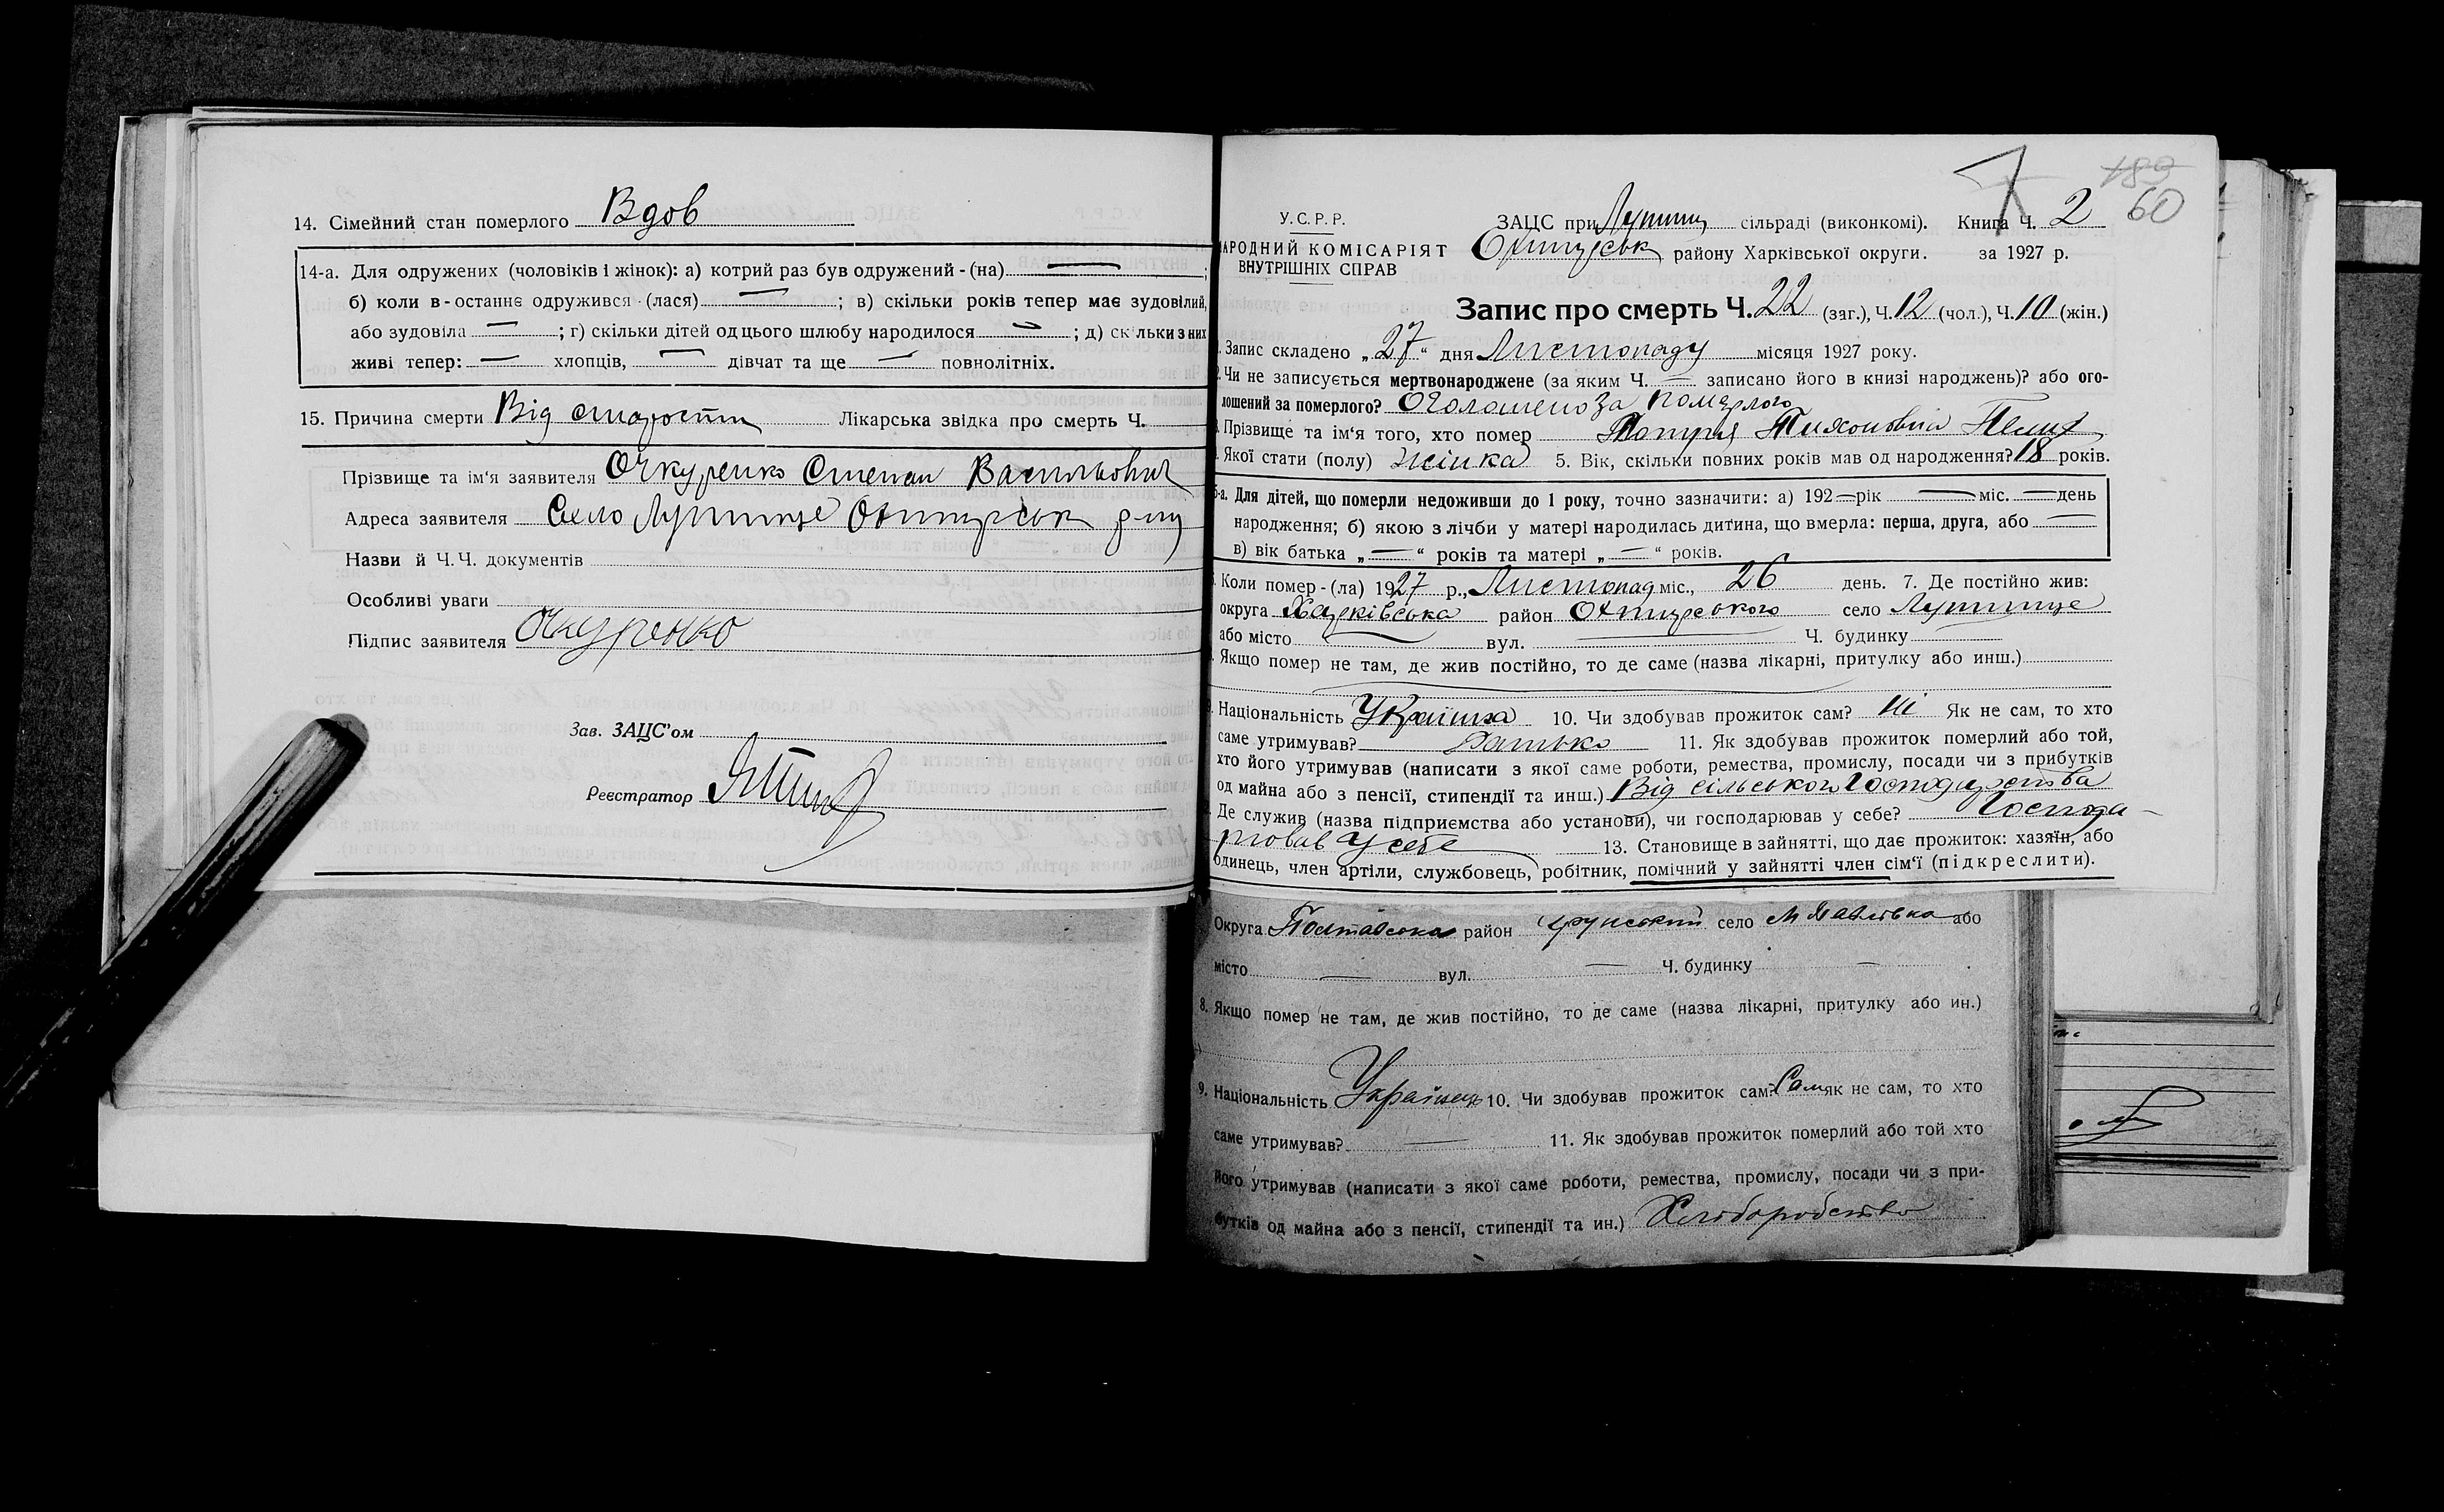 14. Сімейний стан померлого Вдов
14-а. Для одружених (чоловіків і жінок): а) котрий раз був одружений - (на) — ;
б) коли в-останнє одружився (лася) — ; в) скільки років тепер має зудовілий,
або зудовіла — ; г) скільки дітей од цього шлюбу народилося — ; д) скільки з них
живі тепер: — хлопців, — дівчат та ще — повнолітніх.
15. Причина смерти Від старости Лікарська звідка про смерть Ч.
Прізвище та ім'я заявителя Очкуренко Степан Васильович
Адреса заявителя Село Лутище Охтирськ р-ну
Назви й Ч. Ч. документів
Особливі уваги
Підпис заявителя Очкуренко
Зав. ЗАЦС'ом
Реєстратор
189
60
У.С.Р.Р.
НАРОДНИЙ КОМІСАРІЯТ
ВНУТРІШНІХ СПРАВ
ЗАЦС при Лутищ сільраді (виконкомі). Книга Ч. 2
Охтирськ району Харківської округи. за 1927 р.
Запис про смерть Ч. 22 (заг.), Ч. 12 (чол.), Ч. 10 (жін.)
Запис складено „27“ дня Листопаду місяця 1927 року.
Чи не записується мертвонароджене (за яким Ч. — записано його в книзі народжень)? або ого-
лошений за померлого? Оголошено за померлого
Прізвище та ім'я того, хто помер Тихоновна
Якої стати (полу) жінка 5. Вік, скільки повних років мав од народження? 18 років.
5-а. Для дітей, що померли недоживши до 1 року, точно зазначити: а) 192—рік — міс. — день
народження; б) якою з лічби у матері народилась дитина, що вмерла: перша, друга, або —
в) вік батька „—“ років та матері „—“ років.
Коли помер - (ла) 1927 р., Листопад міс., 26 день. 7. Де постійно жив:
округа Харківська район Охтирського село Лутище
або місто — вул. — Ч. будинку —
Якщо помер не там, де жив постійно, то де саме (назва лікарні, притулку або инш.)
Національність Українка 10. Чи здобував прожиток сам? ні Як не сам, то хто
саме утримував? Батько 11. Як здобував прожиток померлий або той,
хто його утримував (написати з якої саме роботи, ремества, промислу, посади чи з прибутків
од майна або з пенсії, стипендії та инш.) Від сільського Господарства
Де служив (назва підприємства або установи), чи господарював у себе? Господа-
рював у себе 13. Становище в зайнятті, що дає прожиток: хазяїн, або
одинець, член артіли, службовець, робітник, помічний у зайнятті член сім'ї (підкреслити).
Округа Полтавська район Грунський село М Павлівка або
місто — вул. — Ч. будинку —
8. Якщо помер не там, де жив постійно, то де саме (назва лікарні, притулку або ин.)
9. Національність Українец 10. Чи здобував прожиток сам? Сам як не сам, то хто
саме утримував? — 11. Як здобував прожиток померлий або той хто
його утримував (написати з якої саме роботи, ремества, промислу, посади чи з при-
бутків од майна або з пенсії, стипендії та ин.) Хліборобство